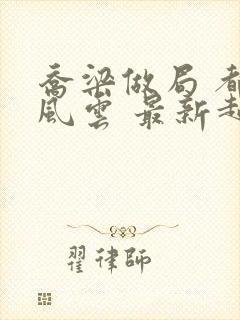 喬梁做局 都
風雲 最新起
翟律師